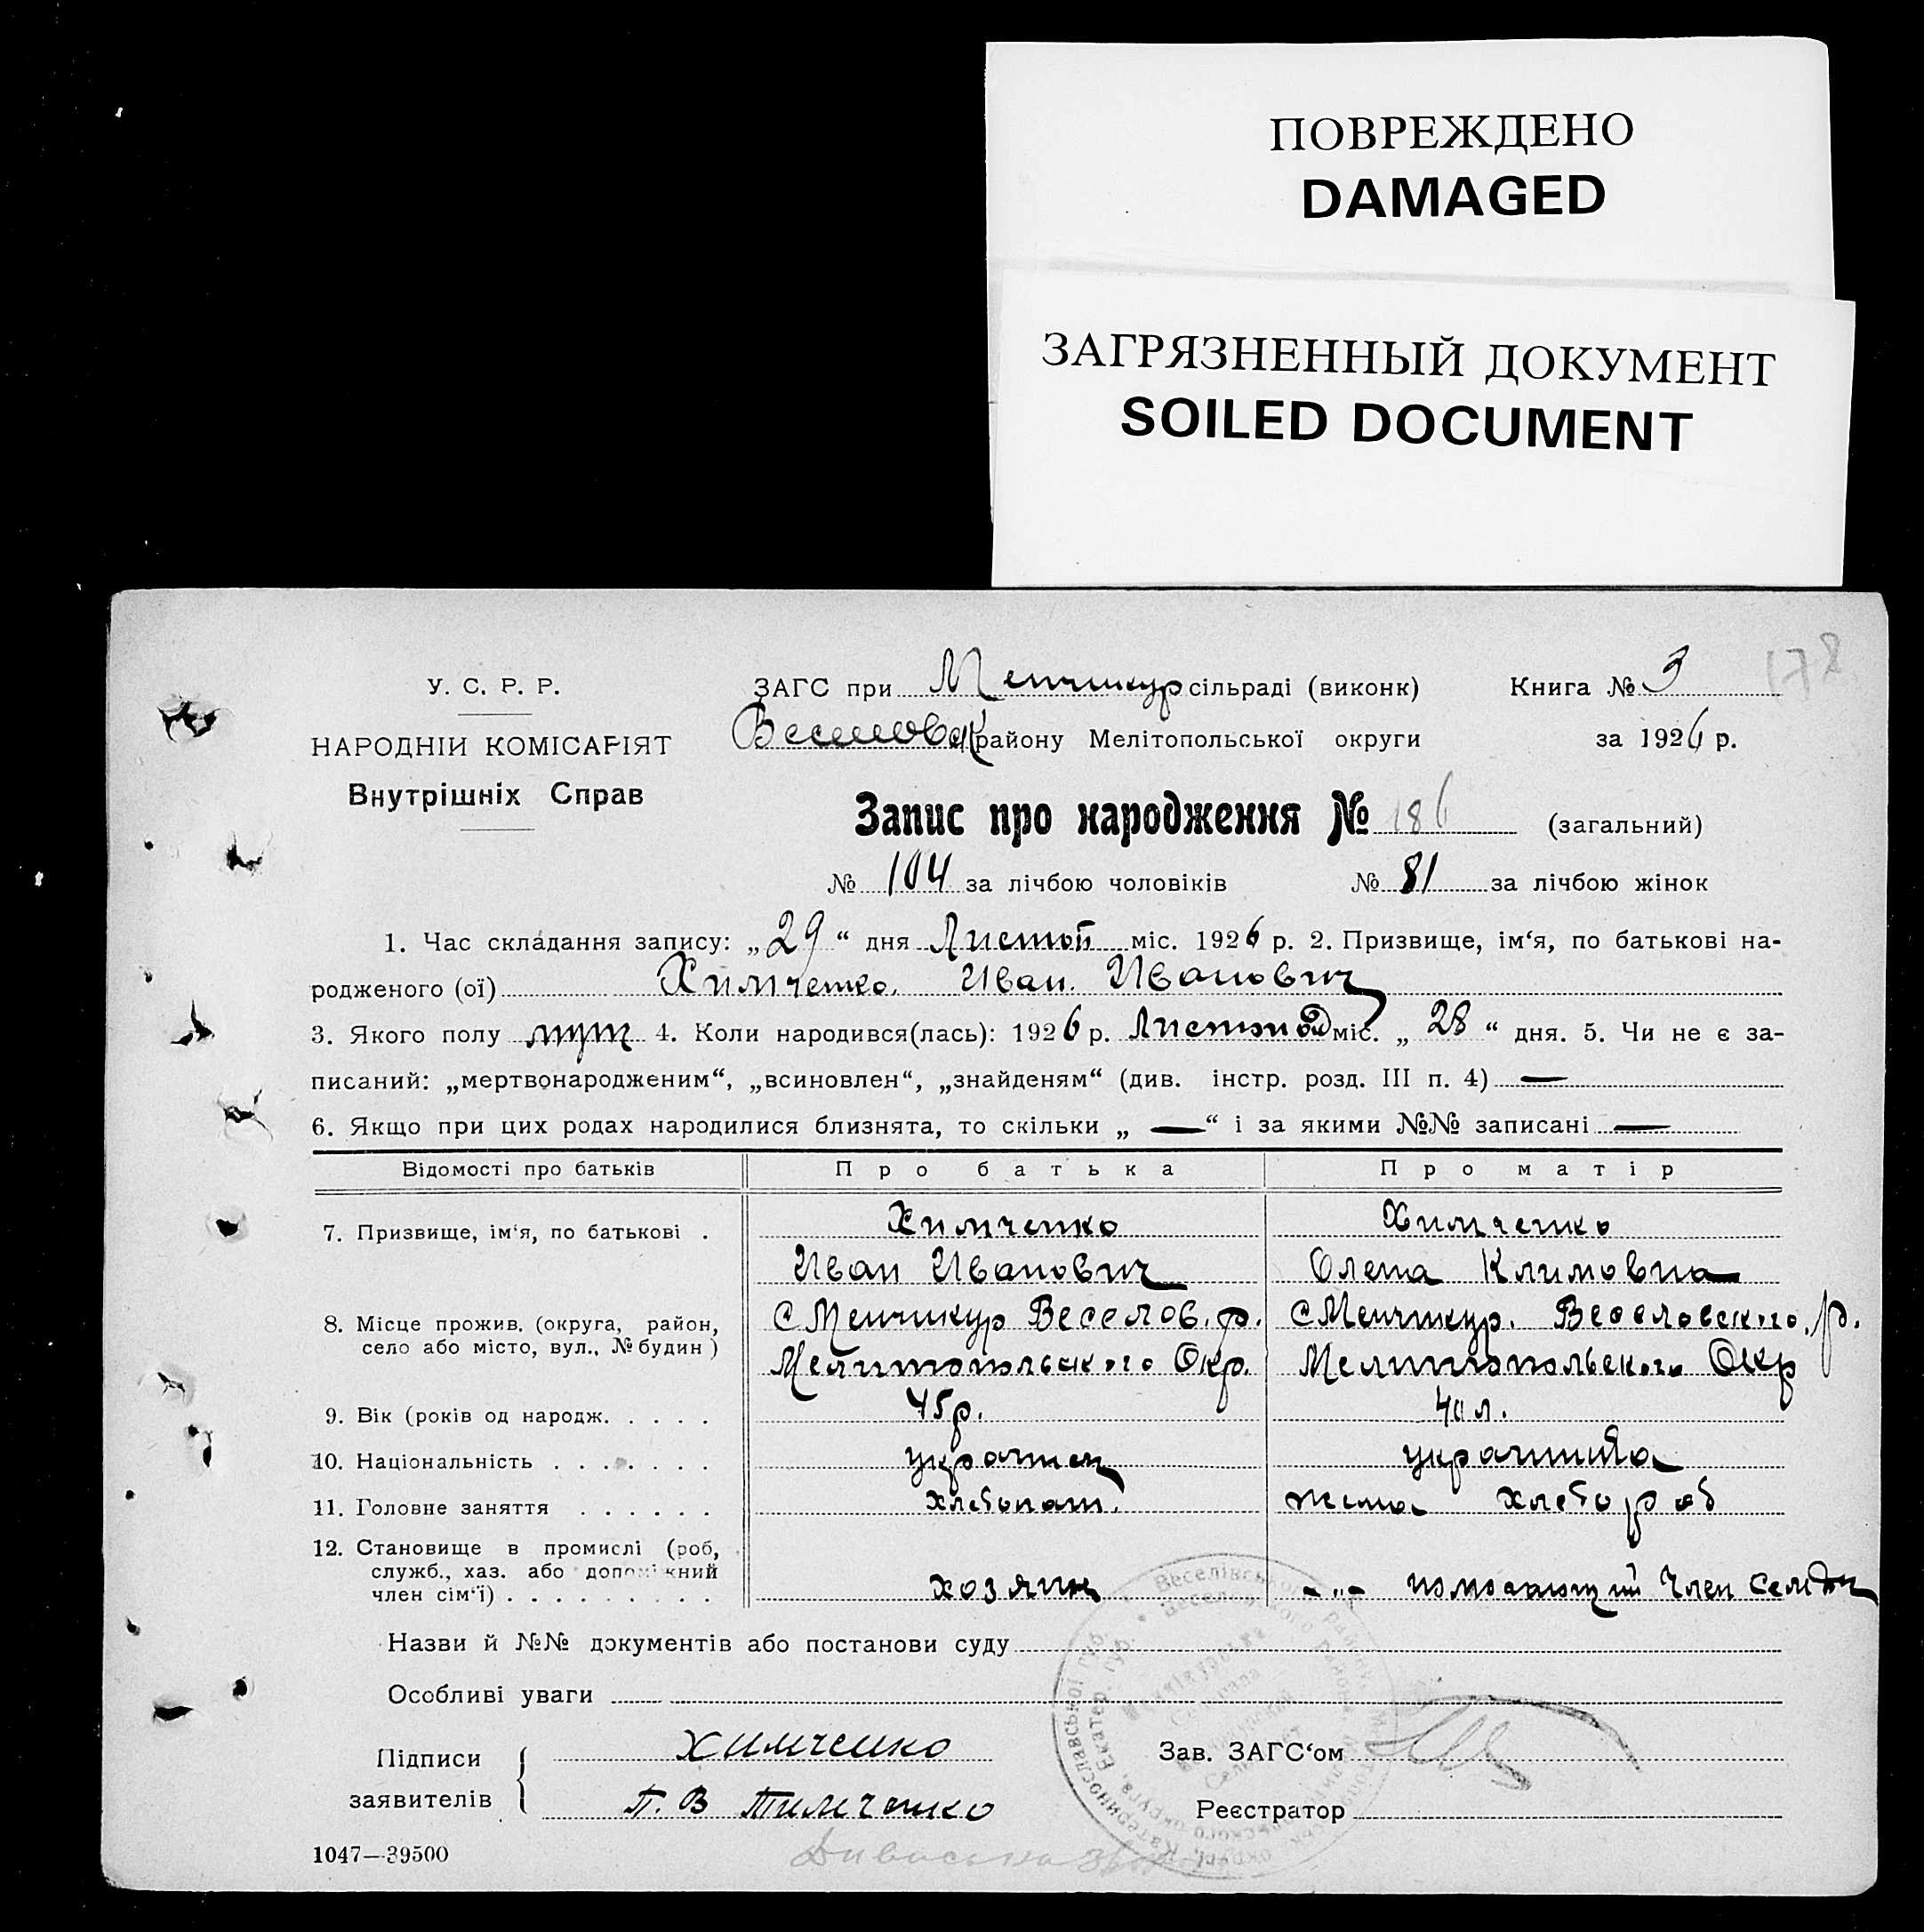 ПОВРЕЖДЕНО
DAMAGED
ЗАГРЯЗНЕННЫЙ ДОКУМЕНТ
SOILED DOCUMENT
178
У. С. Р. Р.
НАРОДНІЙ КОМІСАРІЯТ
Внутрішніх Справ
ЗАГС при Менчикур сільраді (виконк) Книга № 3
Веселовск району Мелітопольської округи за 1926 р.
Запис про народження № 186 (загальний)
№ 104 за лічбою чоловіків № 81 за лічбою жінок
1. Час складання запису: „29“ дня Листоп міс. 1926 р. 2. Призвище, ім‘я, по батькові на-
родженого (ої) Химченко Иван Иванович
3. Якого полу муж 4. Коли народився(лась): 1926 р. Листопад міс. „28“ дня. 5. Чи не є за-
писаний: „мертвонародженим“, „всиновлен“, „знайденям“ (див. інстр. розд. III п. 4) —
6. Якщо при цих родах народилися близнята, то скільки „—“ і за якими №№ записані —
Відомості про батьків Про батька Про матір
7. Призвище, ім‘я, по батькові . Химченко Химченко
Иван Иванович Олена Климовна
8. Місце прожив. (округа, район, С Менчикур Веселов. р. С Менчикур. Веселовского р.
село або місто, вул., № будин) Мелитопольского Окр. Мелитопольского Окр
9. Вік (років од народж. . . . . 45 р. 40 л.
10. Національність . . . . . . . украинец украинка
11. Головне заняття . . . . . . хлебопаш. жена хлебороб
12. Становище в промислі (роб,
служб., хаз. або допоміжний
член сім‘ї) . . . . . . . . . хозяин -"- помогающий Член семьи
Назви й №№ документів або постанови суду
Особливі уваги
Підписи Химченко Зав. ЗАГС‘ом
заявителів П. В Тимченко Реєстратор
1047—39500